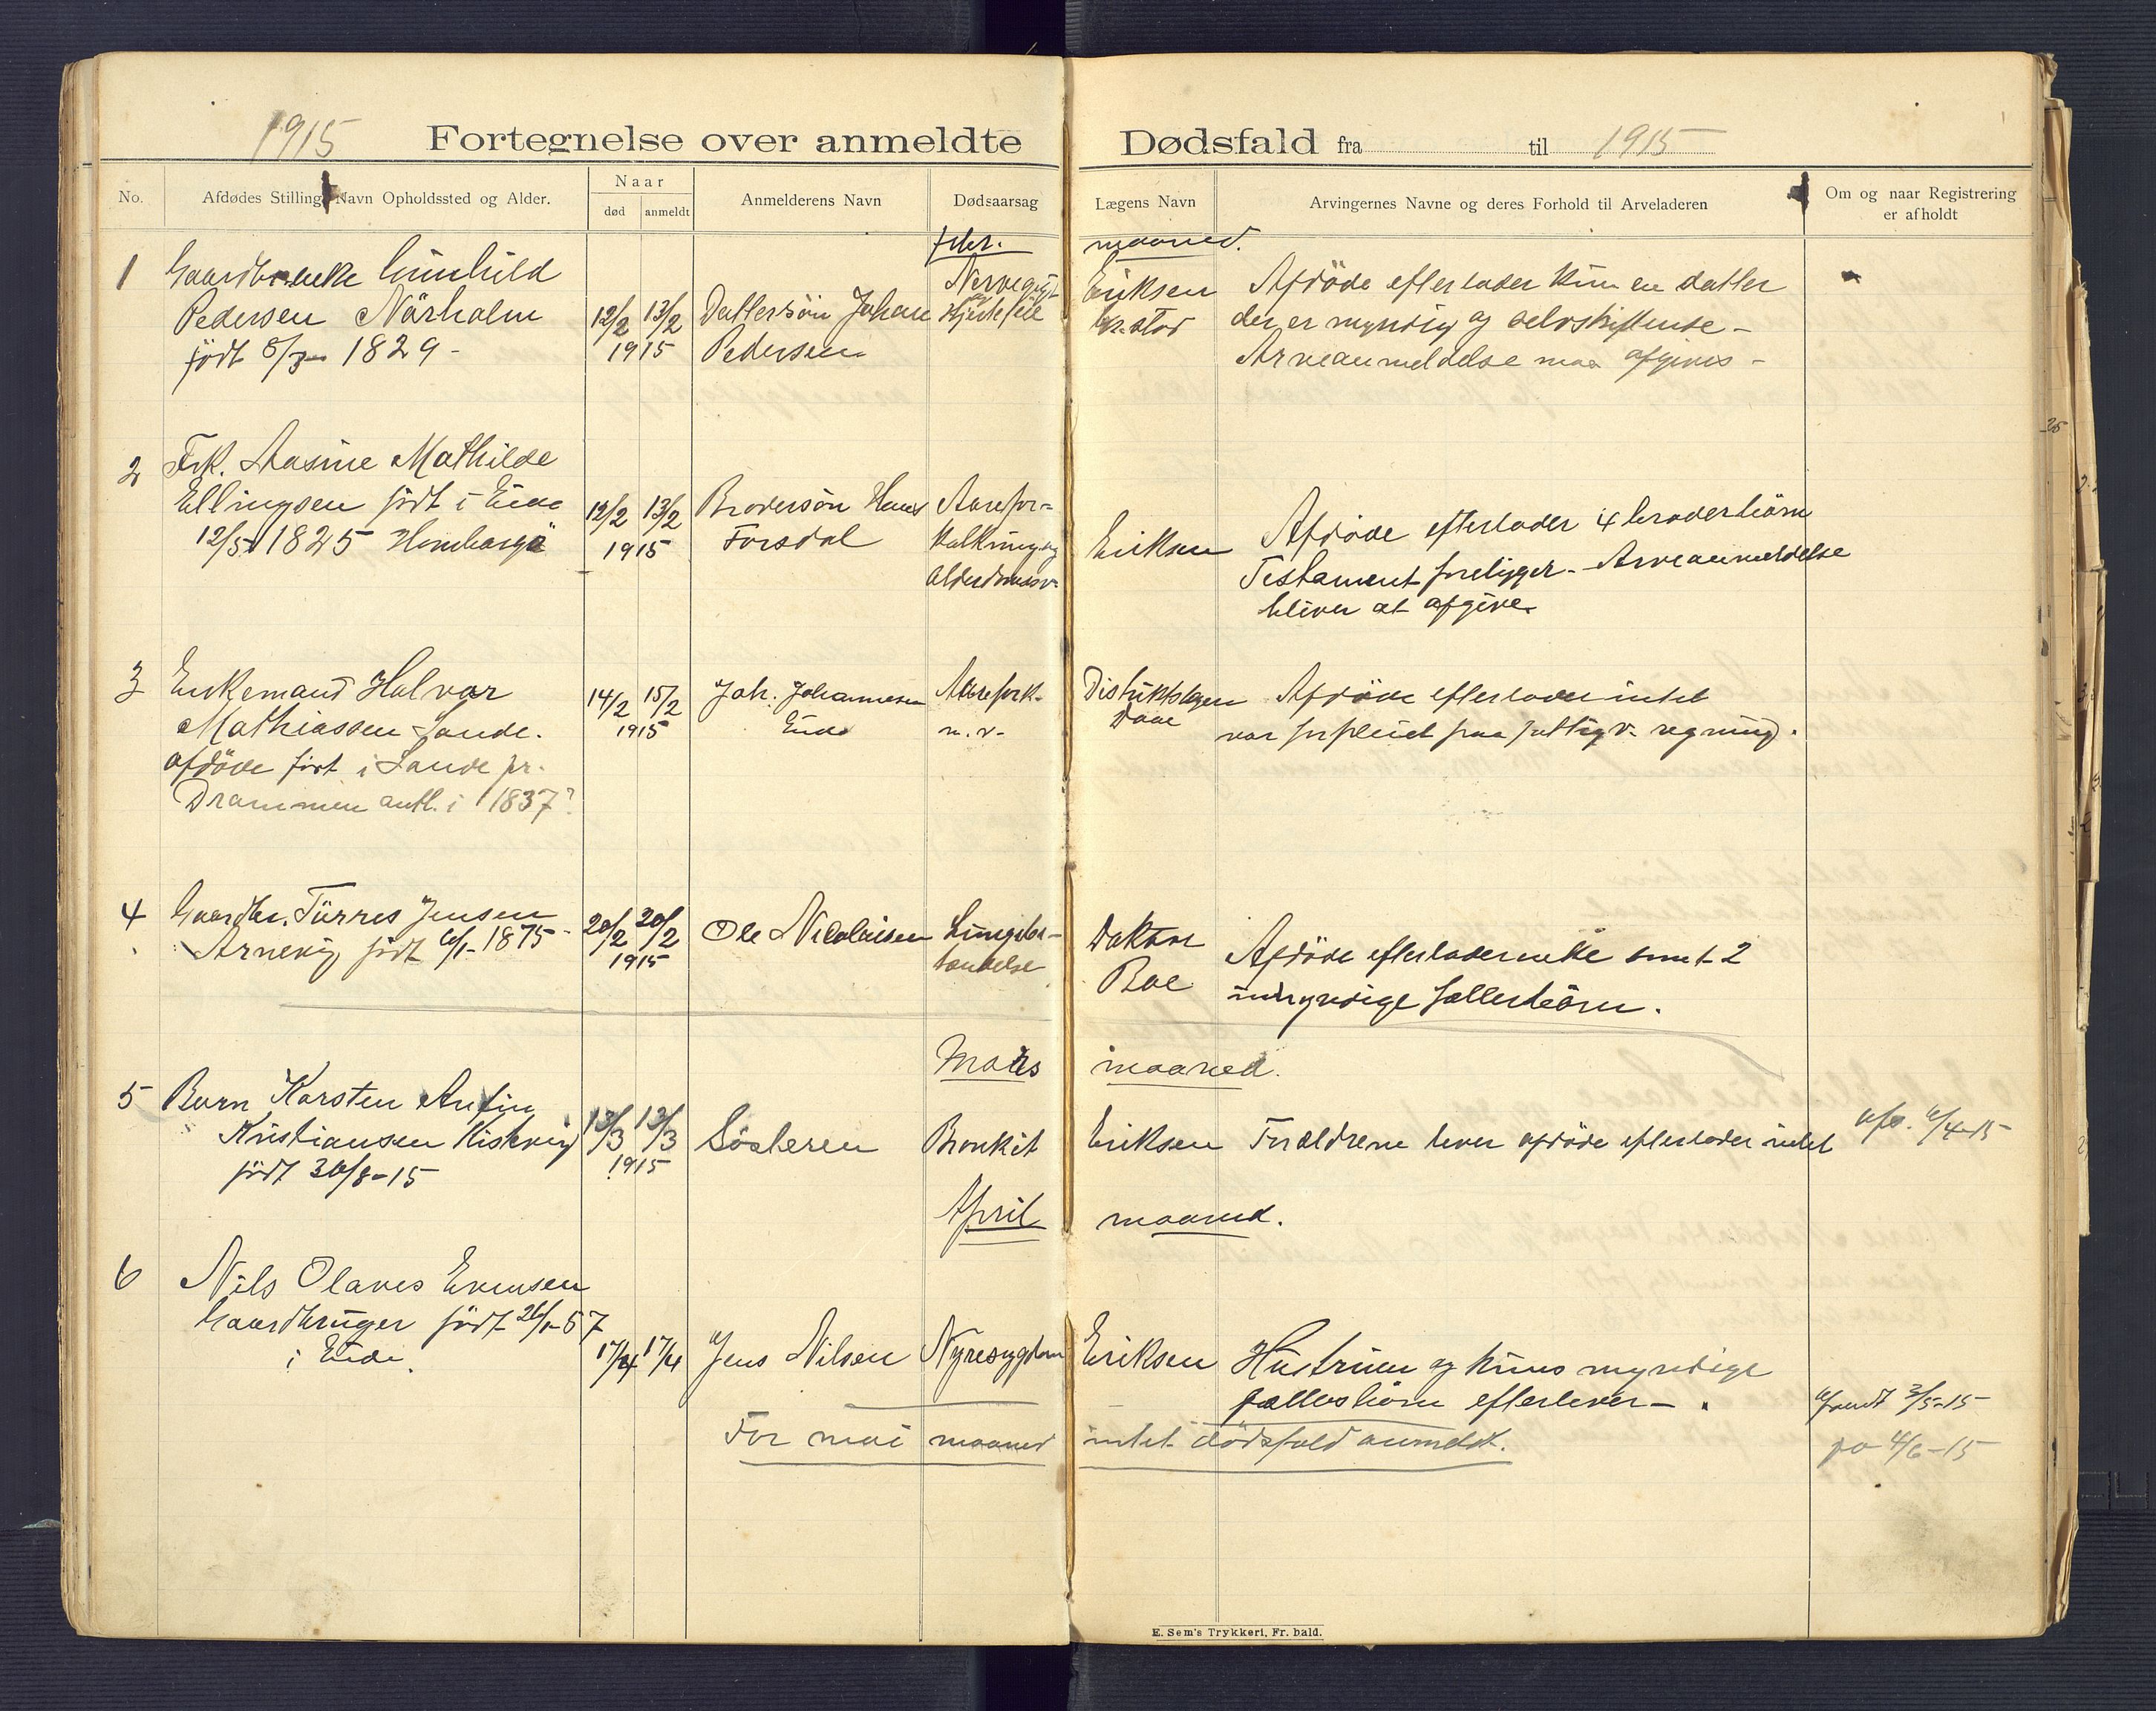 1915
Fortegnelse over anmeldte Dødsfald fra til 1915
No.
Afdødes Stilling Navn Opholdssted og Alder.
Naar
død
anmeldt
Anmelderens Navn
Dødsaarsag
Lægens Navn
Arvingernes Navne og deres Forhold til Arveladeren
Om og naar Registrering
er afholdt
febr. maaned.
1
Gaardbr.enke Gunhild
Pedersen Närholm
födt 8/3 - 1829 -
12/2 13/2
1915
Dattersön Johan
Pedersen
Nervegigt
og Hjertefeil
Eriksen
Afdöde efterlader kun en datter
der er myndig og selvskiftende -
Arveanmeldelse maa afgives -
2
Frk. Aasine Mathilde
Ellingsen födt i Eide
12/5 1825 Homborgö
12/2 13/2
1915
Brodersön Hans
Forsdal
Aarefor-
kalkning og
alderdomssv.
Eriksen
Afdöde efterlader 4 broderbörn
Testament foreligger - Arveanmeldelse
bliver at afgive.
3
Enkemand Halvor
Mathiassen Sande.
afdöde födt i Sande pr.
Drammen antl. i 1837?
14/2 15/2
1915
Joh. Johannesen
Eide
Aarefork.
m. v.
Distriktslægen
Daae
Afdöde efterlader intet
var forpleiet paa fattigv. regning.
4
Gaardbr. Törres Jensen
Arnevig födt 6/1 - 1875
20/2 20/2
1915
Ole Nicolaisen
Lungebe-
tændelse
Doktor
Boe
Afdöde efterlader enke samt 2
umyndige fællesbörn.
Mars maaned.
5
Barn Karsten Anfin
Kristiansen Kistevig
födt 30/8 - 15
13/3 13/3
1915
Sösteren
Bronkit
Eriksen
Forældrene lever afdöde efterlader intet
afs. 6/4-15
April maaned.
6
Nils Olaves Evensen
Gaardbruger födt 26/1-57
i Eide.
17/4 17/4
Jens Nilsen
Nyresygdom
Eriksen
Hustruen og kuns myndige
fællesbörn efterlever - .
afsendt 3/5-15
For mai maaned intet dödsfald anmeldt.
po 4/6-15
E. Sem's Trykkeri, Fr. hald.